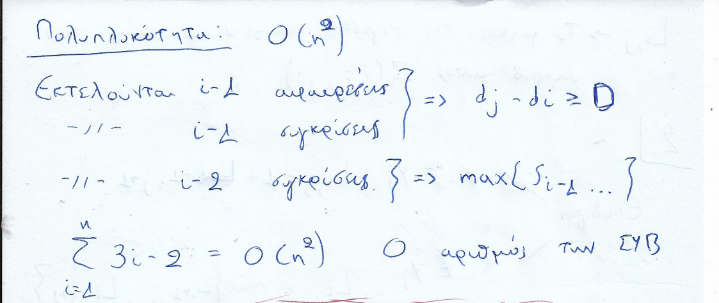 Πολυπλυκότητα: O(n²)
Εκτελούνται i-1 αφαιρέσεις } => dj - di ≥ D
-//- i-1 συγκρίσεις
-//- i-2 συγκρίσεις } => max{ Si-1 ... }
n
Σ 3i-2 = O(n²) Ο αριθμός των ΣΥΒ
i=1